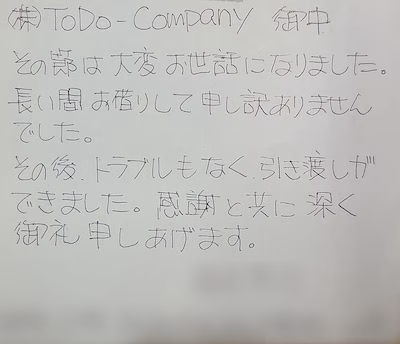 ㈱ToDo-Company 御中
その節は大変お世話になりました。
長い間お借りして申し訳ありません
でした。
その後、トラブルもなく、引き渡しが
できました。感謝と共に深く
御礼申しあげます。